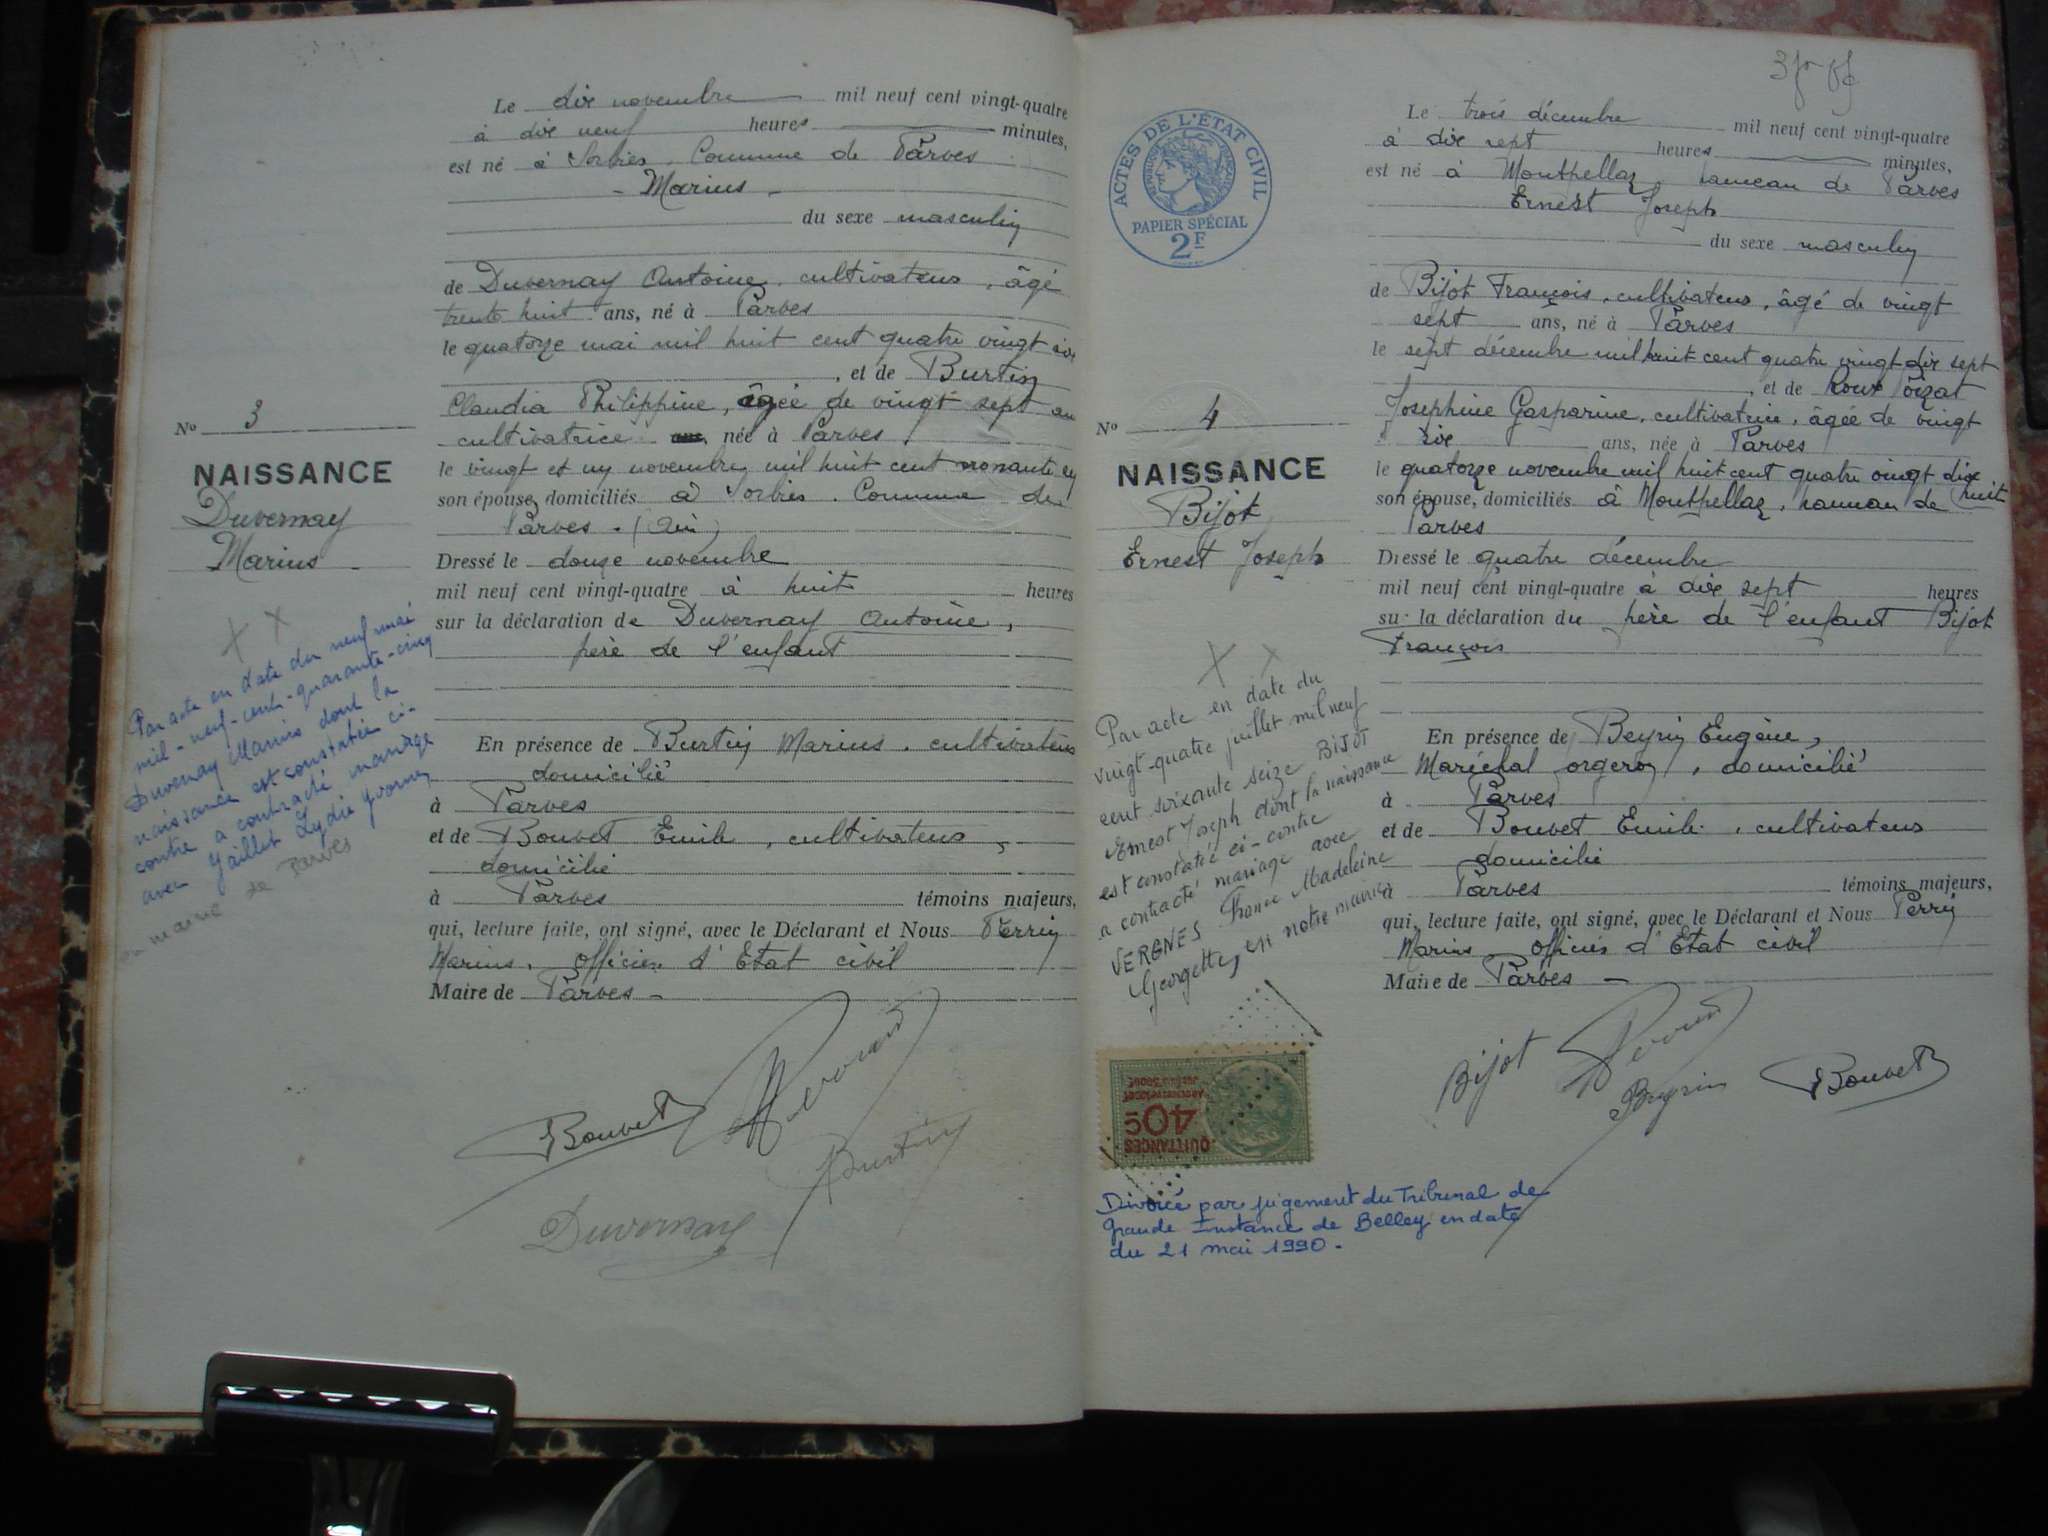 Le dix novembre mil neuf cent vingt-quatre
à dix neuf heures minutes,
est né à Sorbiès. Commune de Parves
- Marius -
du sexe masculin
de Duvernay Antoine, cultivateur, âgé
trente huit ans, né à Parves
le quatorze mai mil huit cent quatre vingt six
, et de Burtin
Claudia Philippine, âgée de vingt sept ans
cultivatrice née à Parves
le vingt et un novembre mil huit cent nonante
son épouse, domiciliés à Sorbiès. Commune de
Parves. (Ain)
Dressé le douze novembre
mil neuf cent vingt-quatre à huit heures
sur la déclaration de Duvernay Antoine,
père de l'enfant
En présence de Burtin Marius. cultivateur
domicilié
à Parves
et de Bouvet Emile, cultivateur,
domicilié
à Parves témoins majeurs,
qui, lecture faite, ont signé, avec le Déclarant et Nous Perrin
Marius, Officier d'Etat civil
Maire de Parves -
Bouvet
Burtin
Duvernay
No 3
NAISSANCE
Duvernay
Marius
Par acte en date du neuf mai
mil-neuf-cent-quarante-cinq
Duvernay Marius dont la
naissance est constatée ci-
contre a contracté mariage
avec Jaillet Lydie Yvonne
en mairie de Parves
ACTES DE L'ÉTAT CIVIL
RÉPUBLIQUE FRANÇAISE
PAPIER SPÉCIAL
2F
Le trois décembre mil neuf cent vingt-quatre
à dix sept heures minutes,
est né à Montpellaz, hameau de Parves
Ernest Joseph
du sexe masculin
de Bijot François, cultivateur, âgé de vingt
sept ans, né à Parves
le sept décembre mil huit cent quatre vingt dix sept
, et de Roux
Joséphine Gasparine, cultivatrice, âgée de vingt
six ans, née à Parves
le quatorze novembre mil huit cent quatre vingt dix
huit
son épouse, domiciliés à Montpellaz, hameau de
Parves
Dressé le quatre décembre
mil neuf cent vingt-quatre à dix sept heures
sur la déclaration du père de l'enfant Bijot
François
En présence de Beyrin Eugène,
Maréchal orgeron, domicilié
à Parves
et de Bouvet Emile, cultivateur
domicilié
à Parves témoins majeurs,
qui, lecture faite, ont signé, avec le Déclarant et Nous Perrin
Marius Officier d'Etat civil
Maire de Parves -
Bijot
Beyrin
Bouvet
No 4
NAISSANCE
Bijot
Ernest Joseph
Par acte en date du
vingt-quatre juillet mil neuf
cent soixante seize BIJOT
Ernest Joseph dont la naissance
est constatée ci-contre
a contracté mariage avec
VERGNES France Madeleine
Georgette, en notre mairie
QUITTANCES
40c
Divorcé par jugement du Tribunal de
Grande Instance de Belley en date
du 21 mai 1990.